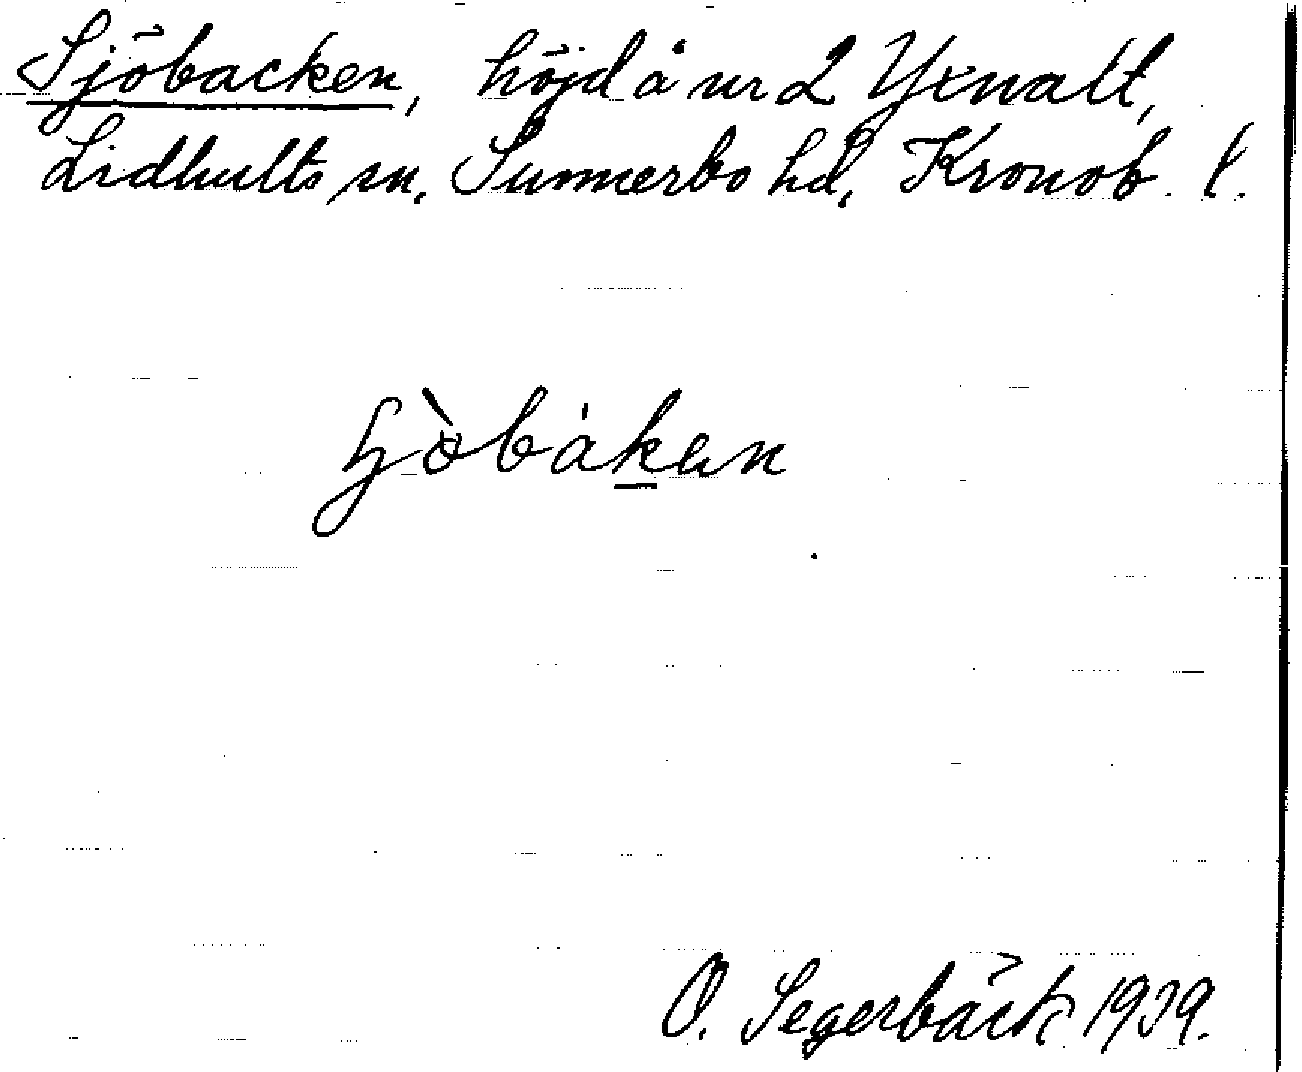 Sjöbacken, höjd å nr 2 Yxnalt,
Lidhults sn. Sunnerbo hd, Kronob. l.
O. Segerbäck 1939.